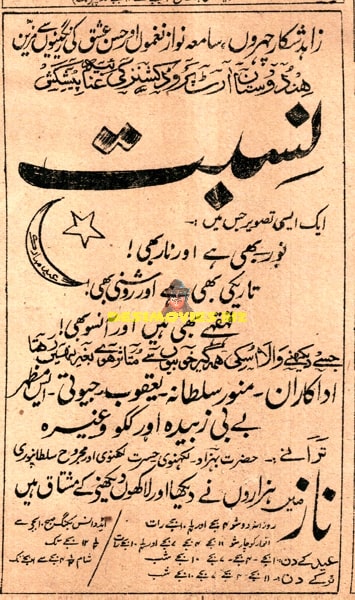 زاہد شکار چہروں، سامعہ نواز نغموں اور حسن عشق کی رنگینیوں سے مزین
ہندوستان آرٹ پروڈکشنز کی پیشکش
نسبت
ایک ایسی تصویر جس میں :-
نور بھی ہے اور نار بھی!
عید مبارک
تاریکی بھی ہے اور روشنی بھی!
قہقہے بھی ہیں اور آنسو بھی!
جسے دیکھنے والا اسکی ہمہ گیر خوبیوں سے متاثر ہوئے بغیر نہیں رہتا
اداکاران - منور سلطانہ - یعقوب - جیوتی - ایس مظہر
بے بی زبیدہ اور ککو وغیرہ
ترانے :- حضرت بہزاد لکھنوی حسرت لکھنوی اور مجروح سلطانپوری
ناز میں ہزاروں نے دیکھا اور لاکھوں دیکھنے کے مشتاق ہیں
روزانہ دو شو ۴ بجے اور ۷ بجے رات
عید کے دن :-
ٹرکے دن :-